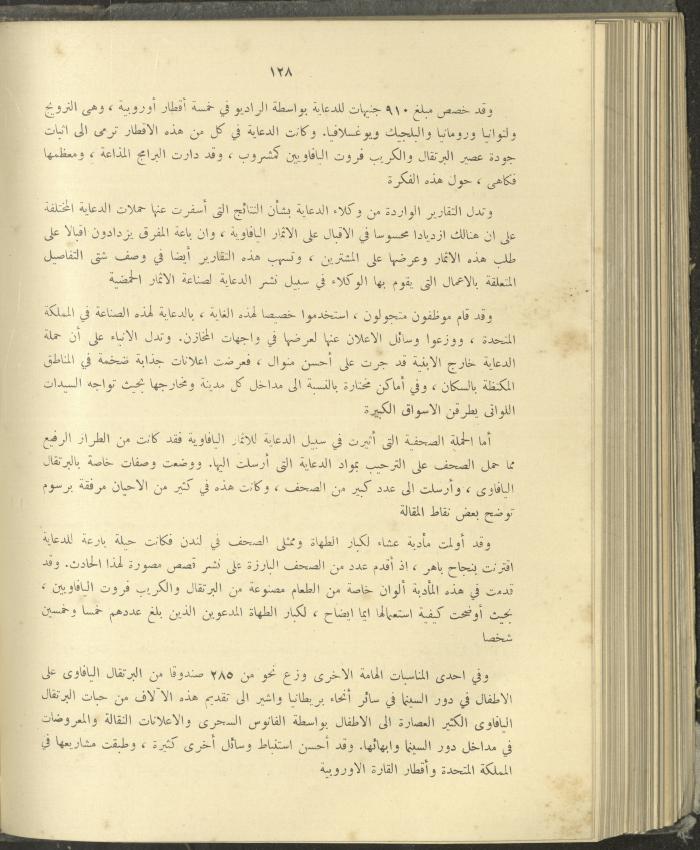 ١٢٨
وقد خصص مبلغ ٩١٠ جنيهات للدعاية بواسطة الراديو في خمسة أقطار أوروبية ، وهى النرويج
ولتوانيا ورومانيا والبلجيك ويوغسلافيا. وكانت الدعاية في كل من هذه الاقطار ترمى الى اثبات
جودة عصير البرتقال والكريب فروت اليافاويين كمشروب ، وقد دارت البرامج المذاعة ، ومعظمها
فكاهى ، حول هذه الفكرة
وتدل التقارير الواردة من وكلاء الدعاية بشأن النتائج التى أسفرت عنها حملات الدعاية المختلفة
على ان هنالك ازديادا محسوسا في الاقبال على الاثمار اليافاوية ، وان باعة المفرق يزدادون اقبالا على
طلب هذه الاثمار وعرضها على المشترين ، وتسهب هذه التقارير أيضا في وصف شتى التفاصيل
المتعلقة بالاعمال التى يقوم بها الوكلاء في سبيل نشر الدعاية لصناعة الاثمار الحمضية
وقد قام موظفون متجولون ، استخدموا خصيصا لهذه الغاية ، بالدعاية لهذه الصناعة في المملكة
المتحدة ، ووزعوا وسائل الاعلان عنها لعرضها في واجهات المخازن. وتدل الانباء على أن حملة
الدعاية خارج الابنية قد جرت على أحسن منوال ، فعرضت اعلانات جذابة ضخمة في المناطق
المكتظة بالسكان ، وفي أماكن مختارة بالنسبة الى مداخل كل مدينة ومخارجها بحيث تواجه السيدات
اللواتى يطرقن الاسواق الكبيرة
أما الحملة الصحفية التى أثيرت في سبيل الدعاية للاثمار اليافاوية فقد كانت من الطراز الرفيع
مما حمل الصحف على الترحيب بمواد الدعاية التى أرسلت اليها. ووضعت وصفات خاصة بالبرتقال
اليافاوى ، وأرسلت الى عدد كبير من الصحف ، وكانت هذه في كثير من الاحيان مرفقة برسوم
توضح بعض نقاط المقالة
وقد أولمت مأدبة عشاء لكبار الطهاة وممثلى الصحف في لندن فكانت حيلة بارعة للدعاية
اقترنت بنجاح باهر ، اذ أقدم عدد من الصحف البارزة على نشر قصص مصورة لهذا الحادث. وقد
قدمت في هذه المأدبة ألوان خاصة من الطعام مصنوعة من البرتقال والكريب فروت اليافاويين ،
بحيث أوضحت كيفية استعمالها ايما ايضاح ، لكبار الطهاة المدعوين الذين بلغ عددهم خمسا وخمسين
شخصا
وفي احدى المناسبات الهامة الاخرى وزع نحو من ٢٨٥ صندوقا من البرتقال اليافاوى على
الاطفال في دور السينما في سائر أنحاء بريطانيا واشير الى تقديم هذه الآلاف من حبات البرتقال
اليافاوى الكثير العصارة الى الاطفال بواسطة الفانوس السحرى والاعلانات النقالة والمعروضات
في مداخل دور السينما وابهائها. وقد أحسن استنباط وسائل أخرى كثيرة ، وطبقت مشاريعها في
المملكة المتحدة وأقطار القارة الاوروبية